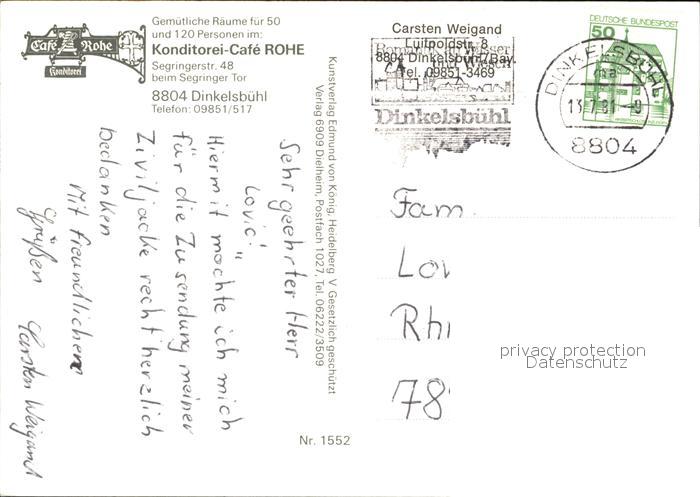 Café Rohe
Konditorei
Gemütliche Räume für 50
und 120 Personen im:
Konditorei-Café ROHE
Segringerstr. 48
beim Segringer Tor
8804 Dinkelsbühl
Telefon: 09851/517
Kunstverlag Edmund von König, Heidelberg V Gesetzlich geschützt
Verlag 6909 Dielheim, Postfach 1027, Tel. 06222/3509
Nr. 1552
Sehr geehrter Herr
Lovic!
Hiermit möchte ich mich
für die Zusendung meiner
Ziviljacke recht herzlich
bedanken
Mit freundlichen
Grüßen Carsten Weigand
Carsten Weigand
Luitpoldstr. 8
8804 Dinkelsbühl/Bay.
Tel. 09851-3469
Dinkelsbühl
DEUTSCHE BUNDESPOST
50
DINKELSBÜHL
ma
13.7.81 -9
8804
Fam.
Lov
Rhi
78
privacy protection
Datenschutz